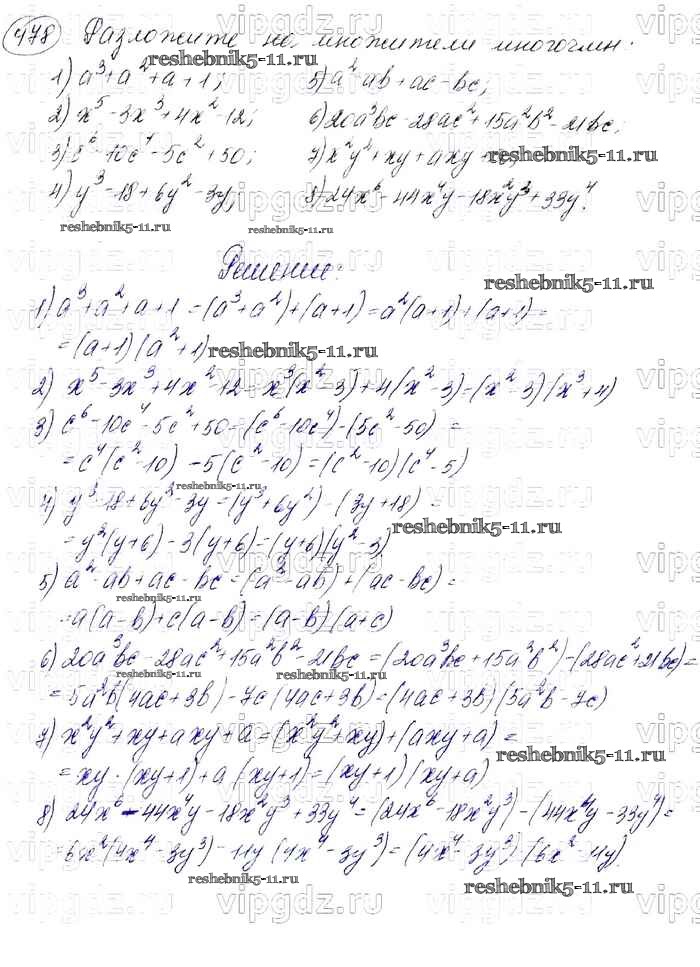 478 Разложите на множители многочлен:
1) a³+a²+a+1; 5) a²-ab+ac-bc;
2) x⁵-3x³+4x²-12; 6) 20a³bc-28ac²+15a²b²-21bc;
3) c⁶-10c⁴-5c²+50; 7) x²y²+xy+axy+
4) y³-18+6y²-3y; 8) 24x⁶-44x⁴y-18x²y³+33y⁴.
Решение:
1) a³+a²+a+1=(a³+a²)+(a+1)=a²(a+1)+(a+1)=
=(a+1)(a²+1)
2) x⁵-3x³+4x²-12=x³(x²-3)+4(x²-3)=(x²-3)(x³+4)
3) c⁶-10c⁴-5c²+50=(c⁶-10c⁴)-(5c²-50)=
=c⁴(c²-10)-5(c²-10)=(c²-10)(c⁴-5)
4) y³-18+6y²-3y=(y³+6y²)-(3y+18)=
=y²(y+6)-3(y+6)=(y+6)(y²-3)
5) a²-ab+ac-bc=(a²-ab)+(ac-bc)=
=a(a-b)+c(a-b)=(a-b)(a+c)
6) 20a³bc-28ac²+15a²b²-21bc=(20a³bc+15a²b²)-(28ac²+21bc)=
=5a²b(4ac+3b)-7c(4ac+3b)=(4ac+3b)(5a²b-7c)
7) x²y²+xy+axy+a=(x²y²+xy)+(axy+a)=
=xy·(xy+1)+a(xy+1)=(xy+1)(xy+a)
8) 24x⁶-44x⁴y-18x²y³+33y⁴=(24x⁶-18x²y³)-(44x⁴y-33y⁴)=
=6x²(4x⁴-3y³)-11y(4x⁴-3y³)=(4x⁴-3y³)(6x²-11y).
reshebnik5-11.ru
vipgdz.ru